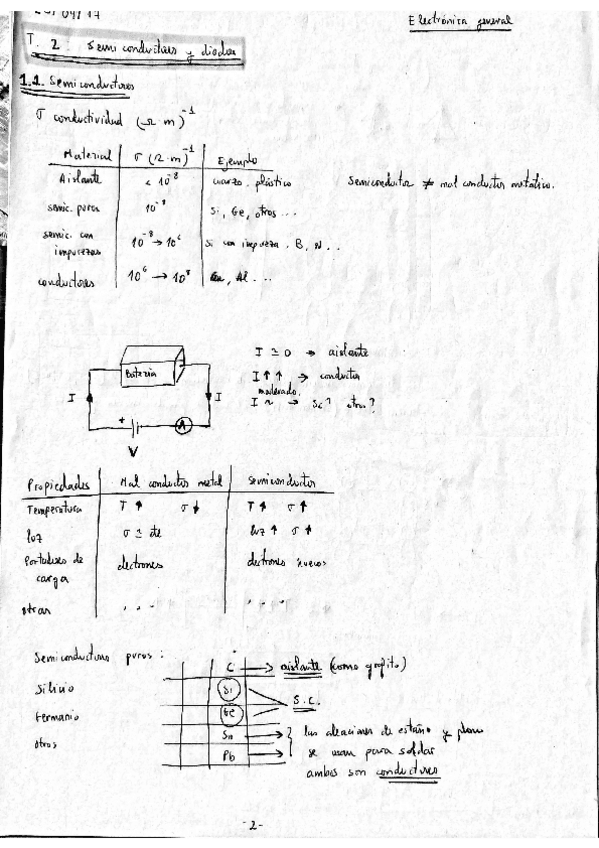 Electrónica general
T. 2 Semiconductores y diodos
1.1. Semiconductores
σ conductividad (Ω·m)⁻¹
Material | σ (Ω·m)⁻¹ | Ejemplo
Aislante | < 10⁻⁸ | cuarzo, plástico
semic. puros | 10⁻⁸ | Si, Ge, otros ...
semic. con impurezas | 10⁻⁸ → 10⁶ | Si con impureza, B, N ..
conductores | 10⁶ → 10⁸ | Al ...
Semiconductor ≠ mal conductor metálico.
Batería
I
I
+ -
A
V
I ≃ 0 → aislante
I ↑↑ → conductor
I ~ moderado. → Sc? otros?
Propiedades | Mal conductor metal | Semiconductor
Temperatura | T ↑ σ ↓ | T ↑ σ ↑
luz | σ ≃ cte | luz ↑ σ ↑
Portadores de carga | electrones | electrones huecos
otras | " " " | " " " "
Semiconductores puros:
Silicio
Germanio
otros
C → aislante (como grafito)
Si
Ge
S.C.
Sn
Pb
las aleaciones de estaño y plomo
se usan para soldar
ambos son conductores
-2-